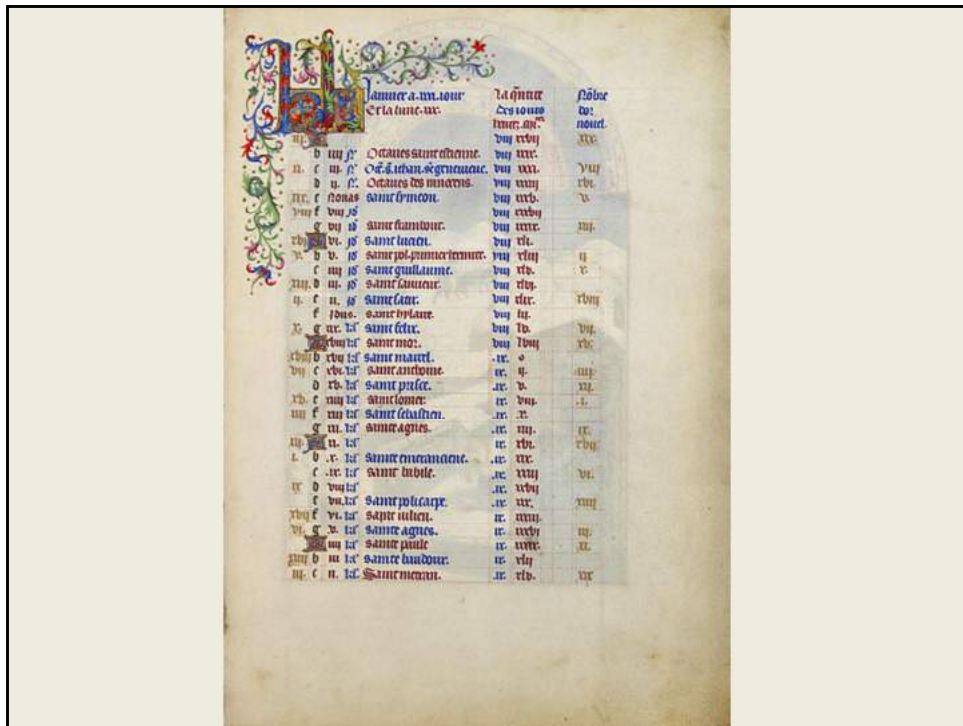 Janvier a. xxxi. iour La q̃ntite Nõbre
Et la lune. xxx. des iours dor
nouel.
iii. xix.
b iiii Octaves saint estienne. viii xxix.
ii. c iii. viii xxxi. viii
d ii. Octaves des innocens. viii xxxiii xvi.
xix. e Nonas saint symeon. viii xxxv. v.
viii f viii id viii xxxvii
g vii id saint frambout. viii xxxix. xiii.
xvi vi. id saint lucien. viii xli. ii
v. b v. id saint pol. premier hermite. viii xliii
c iiii id saint guillaume. viii xlv. x.
xiii d iii. id saint sauveur. viii xlvi.
ii. e ii. id saint satir. viii xlix. xviii
f Idus. saint hylaire. viii lii.
x. g xix. kl saint felix. viii lv. vii.
xviii kl saint mor. viii lviii xv.
xviii b xvii kl saint marcel. .ix. o
vii c xvi. kl saint anthoine. ix. ii. iiii.
d xv. kl saint prisce. .ix. v. xii.
xv. e xiiii kl saint lomer. ix. viii. .i.
iiii f xiii kl saint sebastien. .ix. x.
g xii. kl sainte agnes. .ix. xiii. ix.
xii. kl ix. xvi. xvii
i. b .x. kl sainte emeranciene. .ix. xix.
c .ix. kl saint babile. .ix. xxiii vi.
ix d viii kl .ix. xxvii
e vii. kl saint policarpe. .ix. xxx. xiiii
xvii f vi. kl saint iulien. ix. xxxiii.
vi. g v. kl sainte agnes. ix. xxxvi iii.
iiii kl sainte paule ix. xxxix. xi.
xiiii b iii kl sainte baudour. ix. xlii
iii. c ii. kl Saint metran. .ix. xlv. xix